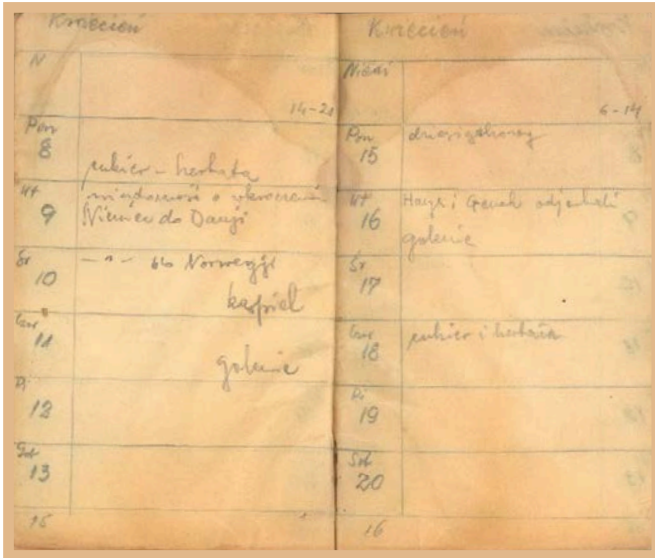 Kwiecień
N
14-21
Pon
8
cukier - herbata
Wt
9
wiadomość o wkroczeniu
Niemiec do Danji
Śr
10
— " — do Norwegji
kąpiel
Czw
11
golenie
Pi
12
Sob
13
15
Kwiecień
Niedz
6-14
Pon
15
dwuzigodnowy
Wt
16
i odjechali
golenie
Śr
17
Czw
18
cukier i herbata
Pi
19
Sob
20
16